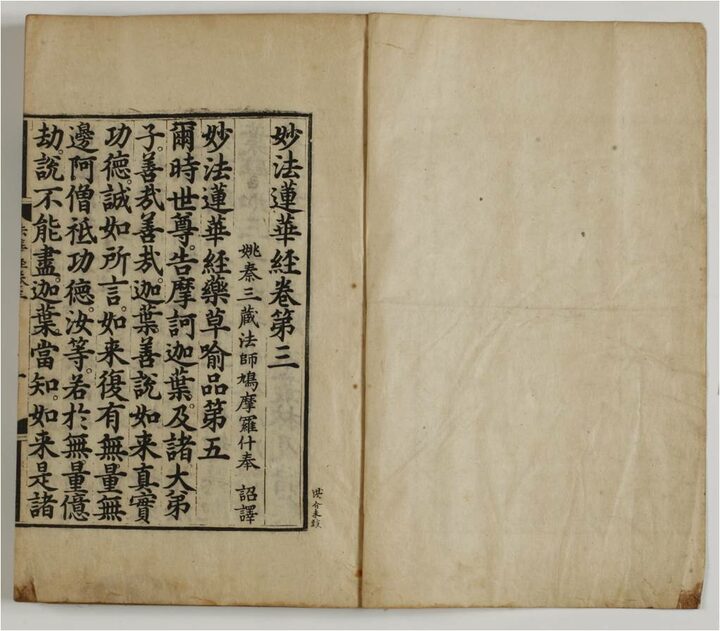 妙法蓮華經卷第三
姚秦三藏法師鳩摩羅什奉 詔譯
妙法蓮華經藥草喻品第五
爾時世尊。告摩訶迦葉。及諸大弟
子。善哉善哉。迦葉善說如来真實
功德。誠如所言。如来復有無量無
邊阿僧祇功德。汝等。若於無量億
劫。說不能盡。迦葉當知。如来是諸